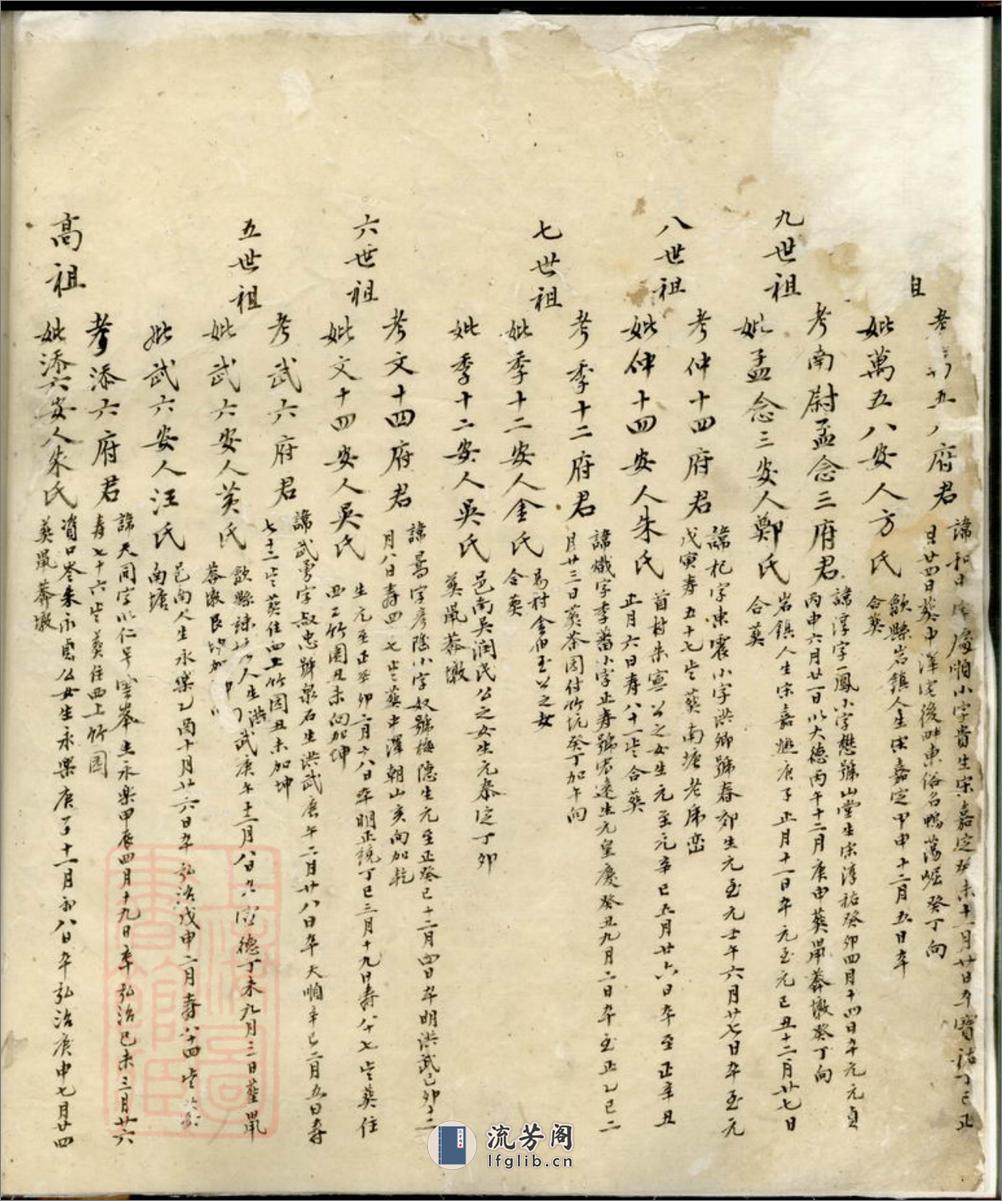 考萬五八府君
諱和
小字貴生宋嘉定癸未十一月廿日卒寶祐丁巳正
月廿四日葬中澤宅後畔東俗名鴨蕩崛癸丁向
妣萬五八安人方氏
歙縣岩鎮人生宋嘉定甲申十二月五日卒
合葬
九世祖
考南尉孟念三府君
諱淳字一鳳小字懋號山堂生宋淳祐癸卯四月十四日卒元元貞
丙申六月廿一日以大德丙午十二月庚申葬鼠莽墩癸丁向
妣孟念三安人鄭氏
岩鎮人生宋嘉熈庚子正月十一日卒元至元己丑十二月廿七日
合葬
八世祖
考仲十四府君
諱杞字東震小字洪卿號春郊生元至元壬午六月廿七日卒至元
戊寅壽五十七歲葬南塘老席巒
妣仲十四安人朱氏
首村朱憲公之女生元至元辛巳五月廿六日卒至正辛丑
正月六日壽八十一歲合葬
七世祖
考季十二府君
諱熾字季蕃小字正壽號宏遠生元皇慶癸丑九月二日卒至正乙巳二
月廿三日葬茶園付竹坑癸丁加午向
妣季十二安人金氏
合葬
妣季十二安人吳氏
邑南吳潤民公之女生元泰定丁卯
葬鼠莽墩
六世祖
考文十四府君
諱暠字彥隆小字奴號梅隱生元至正癸巳十二月四日卒明洪武己卯十二
月八日壽四十七歲葬中澤朝山亥向加乾
妣文十四安人吳氏
生元至正癸卯六月六八日卒明正統丁巳三月十九日壽八十七歲葬住
西上竹園丑未向加坤
五世祖
考武六府君
諱武勇字叔忠號泉石生洪武庚午二月廿八日卒天順辛巳二月五日壽
七十二歲葬住西上竹園丑未加坤
妣武六安人黃氏
歙縣
人生洪武庚午十二月八日卒宣德丁未九月三日葬鼠
莽墩艮坤加
妣武六安人汪氏
邑南人生永樂乙酉十月廿六日卒弘治戊申二月壽八十四歲葬
南塘
高祖
考添六府君
諱天同字以仁号雲峯生永樂甲辰四月十九日卒弘治己未三月廿六
壽七十六歲葬住西上竹園
妣添六安人朱氏
資口岺朱永雲公女生永樂庚子十一月初八日卒弘治庚申七月廿四
葬鼠莽墩
流芳阁
lfglib.cn